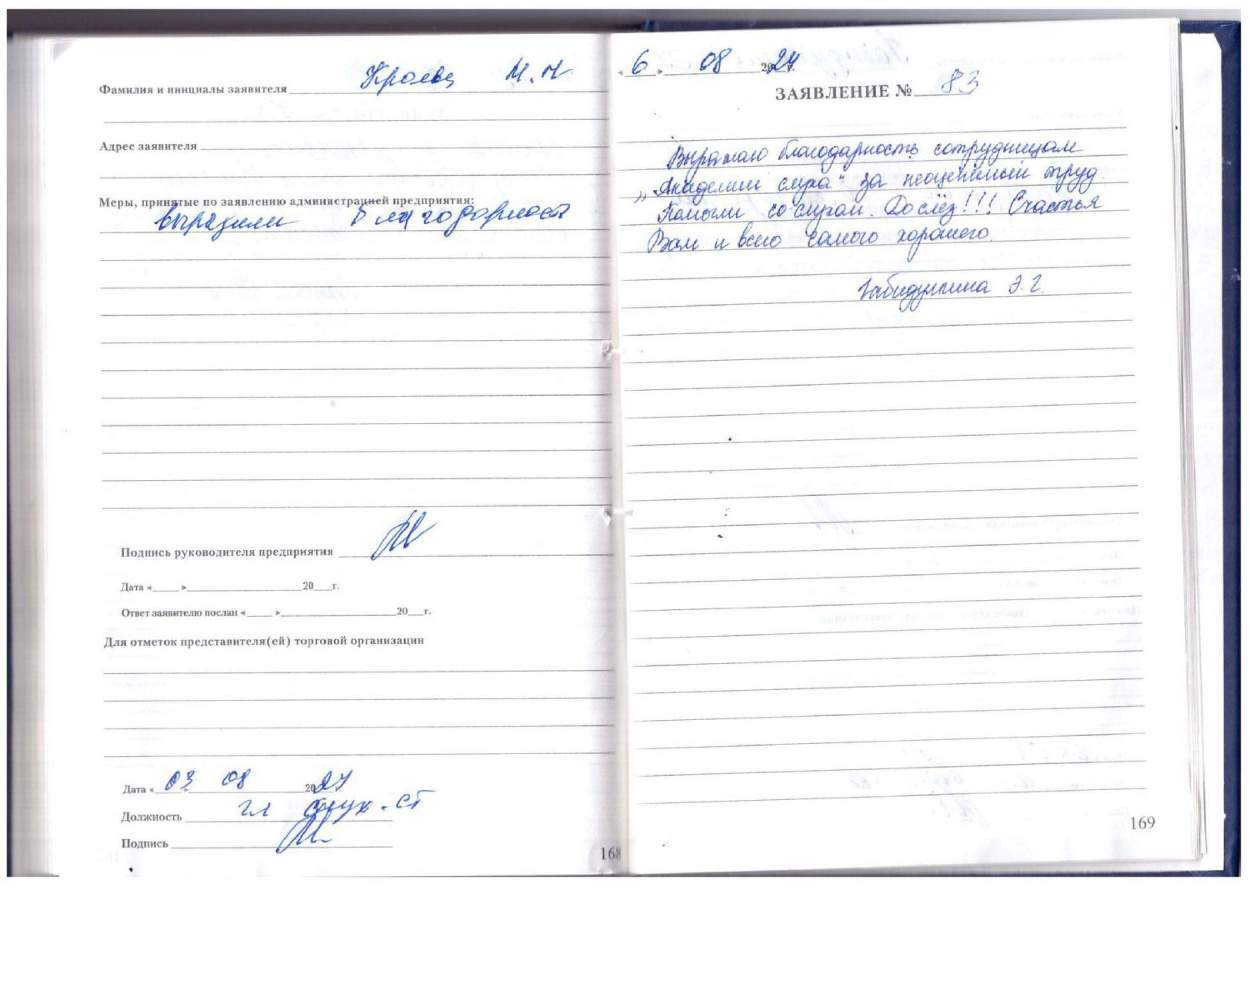 Фамилия и инициалы заявителя Кроевец М.Н
Адрес заявителя
Меры, принятые по заявлению администрацией предприятия:
выразили благодарность
Подпись руководителя предприятия
Дата «___» ___ 20__г.
Ответ заявителю послан «___» ___ 20__г.
Для отметок представителя(ей) торговой организации
Дата «03» 08 2024
Должность гл
Подпись
168
«6» 08 2024 г.
ЗАЯВЛЕНИЕ № 83
Выражаю благодарность сотрудницам
„Академии слуха“ за неоценимый труд.
Помогли со слухом. До слёз!!! Счастья
Вам и всего самого хорошего.
Габидуллина Э.Г.
169